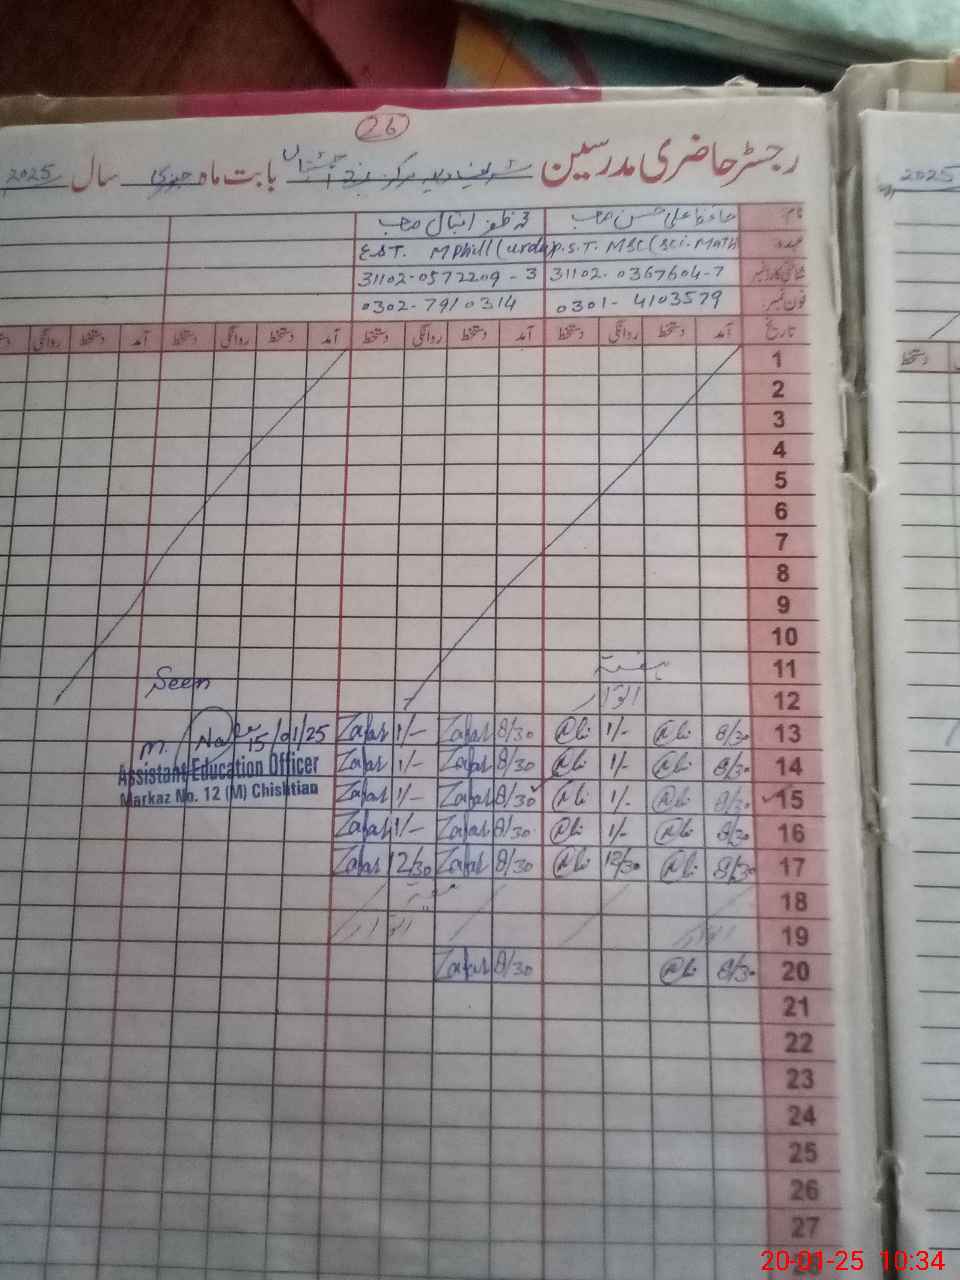 26
رجسٹر حاضری مدرسین بابت ماہ جنوری سال 2025
2025
نام حافظ علی حسن صاحب محمد ظفر اقبال صاحب
عہدہ P.S.T. MSc (Sci. Math E.S.T. Mphill (urdu
شناختی کارڈ نمبر 31102-0367604-7 31102-0572209-3
فون نمبر 0301-4103579 0302-7910314
تاریخ آمد دستخط روانگی دستخط آمد دستخط روانگی دستخط آمد دستخط روانگی دستخط آمد دستخط روانگی
دستخط
1
2
3
4
5
6
7
8
9
10
11 ہفتہ
12 اتوار
Seen
13 8/30 Ali 1/- Ali 8/30 Zafar 1/- Zafar
15/01/25
14 8/30 Ali 1/- Ali 8/30 Zafar 1/- Zafar
Assistant Education Officer
Markaz No. 12 (M) Chishtian
15 8/30 Ali 1/- Ali 8/30 Zafar 1/- Zafar
16 8/30 Ali 1/- Ali 8/30 Zafar 1/- Zafar
17 8/30 Ali 12/30 Ali 8/30 Zafar 12/30 Zafar
18 ہفتہ
19 اتوار اتوار
20 8/30 Ali 8/30 Zafar
21
22
23
24
25
26
27
28
20-01-25 10:34